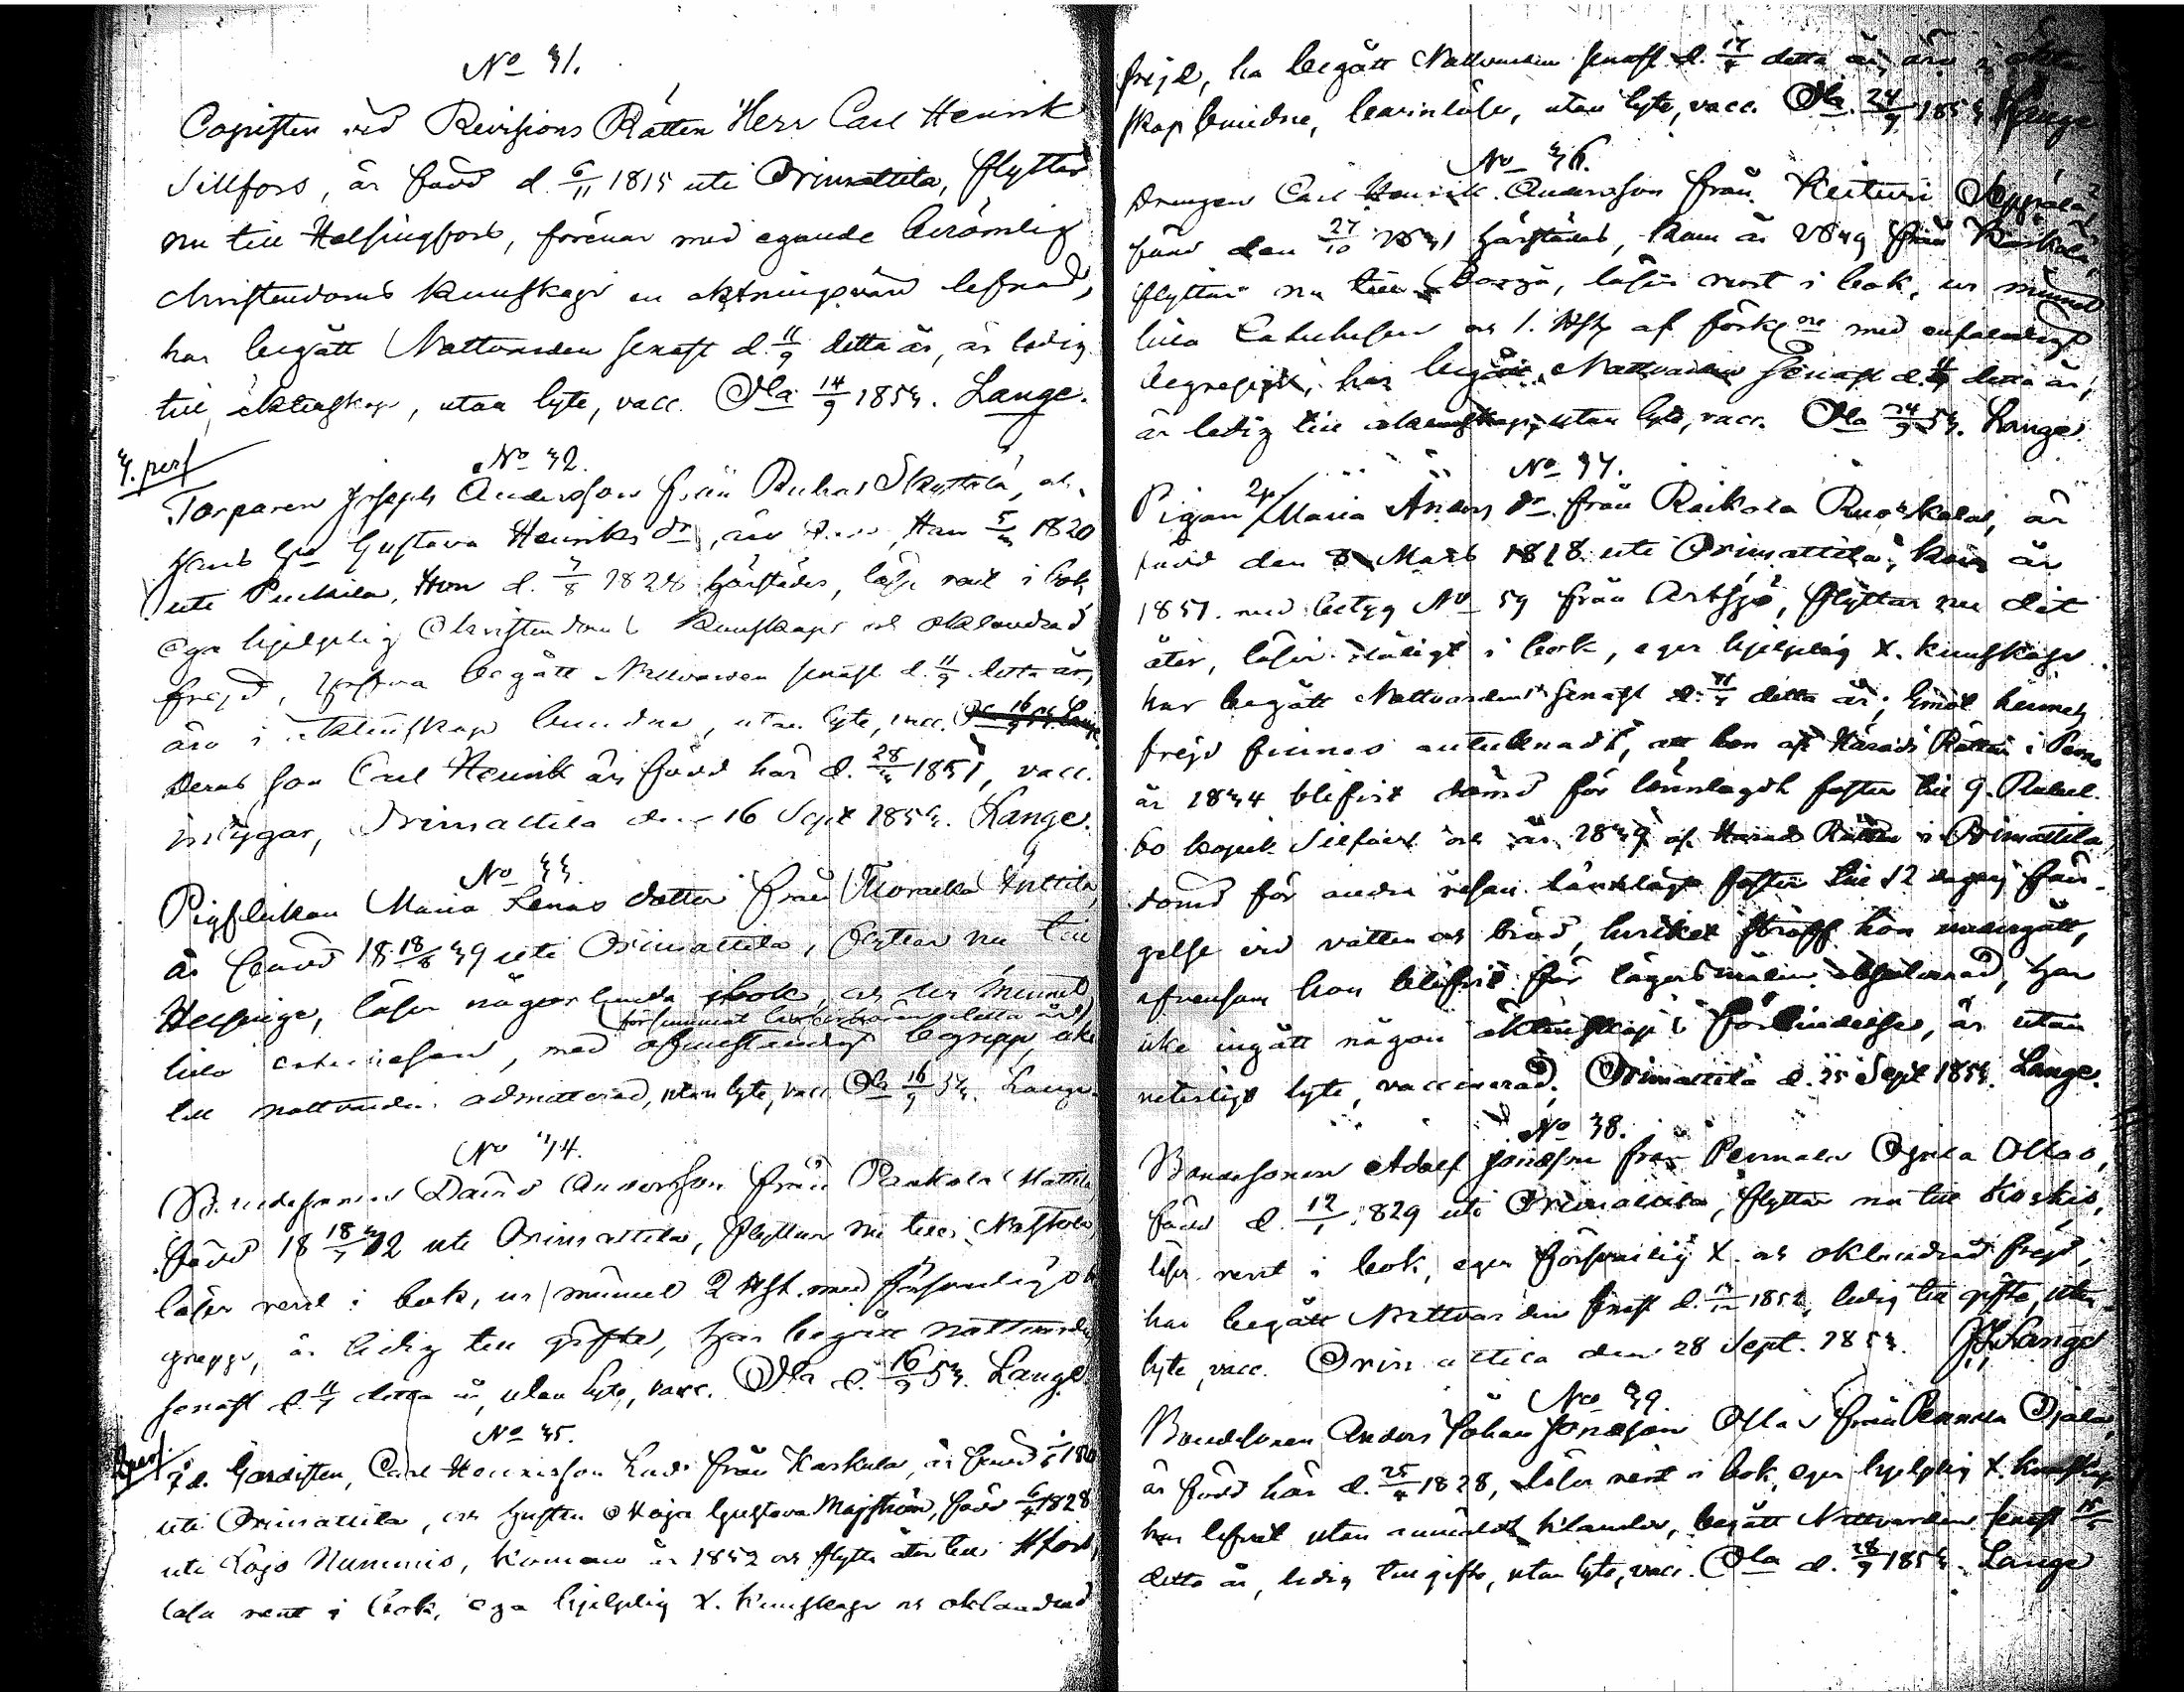 No 31.
Copisten vid Revisions Rätten Herr Carl Henrik
Sillfors, är född d. 6/11 1815 uti Orimattila, flyttar
nu till Helsingfors, förenar med egande berömlig
christendoms kunskap en aktningsvärd lefnad,
har begått Nattvarden senast d. 11/9 detta år, är ledig
till äktenskap, utan lyte, vacc. Ola 14/9 1853. Lange.
3. pers
No 32.
Torparen Joseph Andersson från Ruhas Skyttälä, och
hans Hu Gustava Henriks dr, äro födde, Han 5/3 1820
uti Puckila, Hon d. 3/8 1828 härstädes, läsa rent i bok
ega hjelplig Christendoms kunskap och oklandrad
frejd, hafva begått Nattvarden senast d. 11/9 detta år,
äro i äktenskap bundne, utan lyte, vacc. Ola 16/9 53. Lange.
Deras son Carl Henrik är född här d. 28/3 1851, vacc.
intygar, Orimattila den 16 Sept 1853. Lange.
No 33.
Pigflickan Maria Lenas dotter från Anttila,
är född 18 18/8 39 uti Orimattila, flyttar nu till
Helsinge, läser någorlunda i bok, och ur minnet
(försummat läseförhören detta år)
hela catechesen, med begrepp, icke
till nattvarden admitterad, utan lyte, vacc. Ola 16/9 53. Lange.
No 34.
Bondesonen David Andersson från Pankala Mattila
född 18 18/7 32 uti Orimattila, flyttar nu till Nastola,
läser rent i bok, ur minnet 2 Hst. med försvarligt be
grepp, är ledig till gifte, har begått nattvarden
senast d. 11/9 detta år, utan lyte, vacc. Ola d. 16/9 53. Lange
No 35.
2 pers.
f.d. Gardisten, Carl Henriksson Lud från Karkula, är född
uti Orimattila, och hustru Maja Gustava Majström, född 6/4 1828
uti Lojo Nummis, komne år 1852 och flytta åter till Hfors,
läsa rent i bok, ega hjelplig X. kunskap och oklandrad
frejd, ha begått Nattvarden senast d. detta år, äro i äkten
skap bundne, barnlöse, utan lyte, vacc. Ola 24/9 1853. Lange
No 36.
Drengen Carl Henrik Andersson från Keituri Seppälä,
född den 27/10 1831 härstädes, kom år 1849 från Koskis,
flyttar nu till Borgå, läser rent i bok, ur minnet
hela Catechesen och 1. Hst af förkne med enfaldigt
begrepp, har begått Nattvarden senast d. 11/9 detta år,
är ledig till äktenskap, utan lyte, vacc. Ola 24/9 53. Lange
No 37.
Pigan Maria Anders dr från Raikola Ruoskala, är
född den 8 Mars 1818 uti Orimattila, kom år
1851 med betyg No 59 från Artsjö, flyttar nu dit
åter, läser dåligt i bok, eger hjelplig X. kunskap
har begått Nattvarden senast d. 11/9 detta år; emot hennes
frejd finnes antecknadt, att hon af Härads Rätten i Perno
år 1844 blifvit dömd för lönnlagdt foster till 9. Rubel
60 kopek Silfver och år 1849 af Härads Rätten i Orimattila
dömd för andra resan lönnlagt foster till 12 dagars fän-
gelse vid vatten och bröd, hvilket straff hon undergått,
äfvensom hon blifvit för lägersmålen absolverad, har
icke ingått någon äktenskaps förbindelse, är utan
veterligt lyte, vaccinerad. Orimattila d. 25 Sept 1853. Lange.
No 38.
Bondesonen Adolf Jonasson från Pennala Ojala Ollas,
född d. 12/1 1829 uti Orimattila, flyttar nu till Koskis,
läser rent i bok, eger försvarlig X. och oklandrad frejd,
har begått Nattvarden senast d. 1852, ledig till gifte, utan
lyte, vacc. Orimattila den 28 Sept. 1853. Lange
No 39.
Bondesonen Anders Johan Jonasson Ollas från Pennala Ojala,
är född här d. 25/4 1828, läser rent i bok, eger hjelplig X. kunskap
har lefvat utan anmäldt klander, begått Nattvarden senast
detta år, ledig till gifte, utan lyte, vacc. Ola d. 28/9 1853. Lange